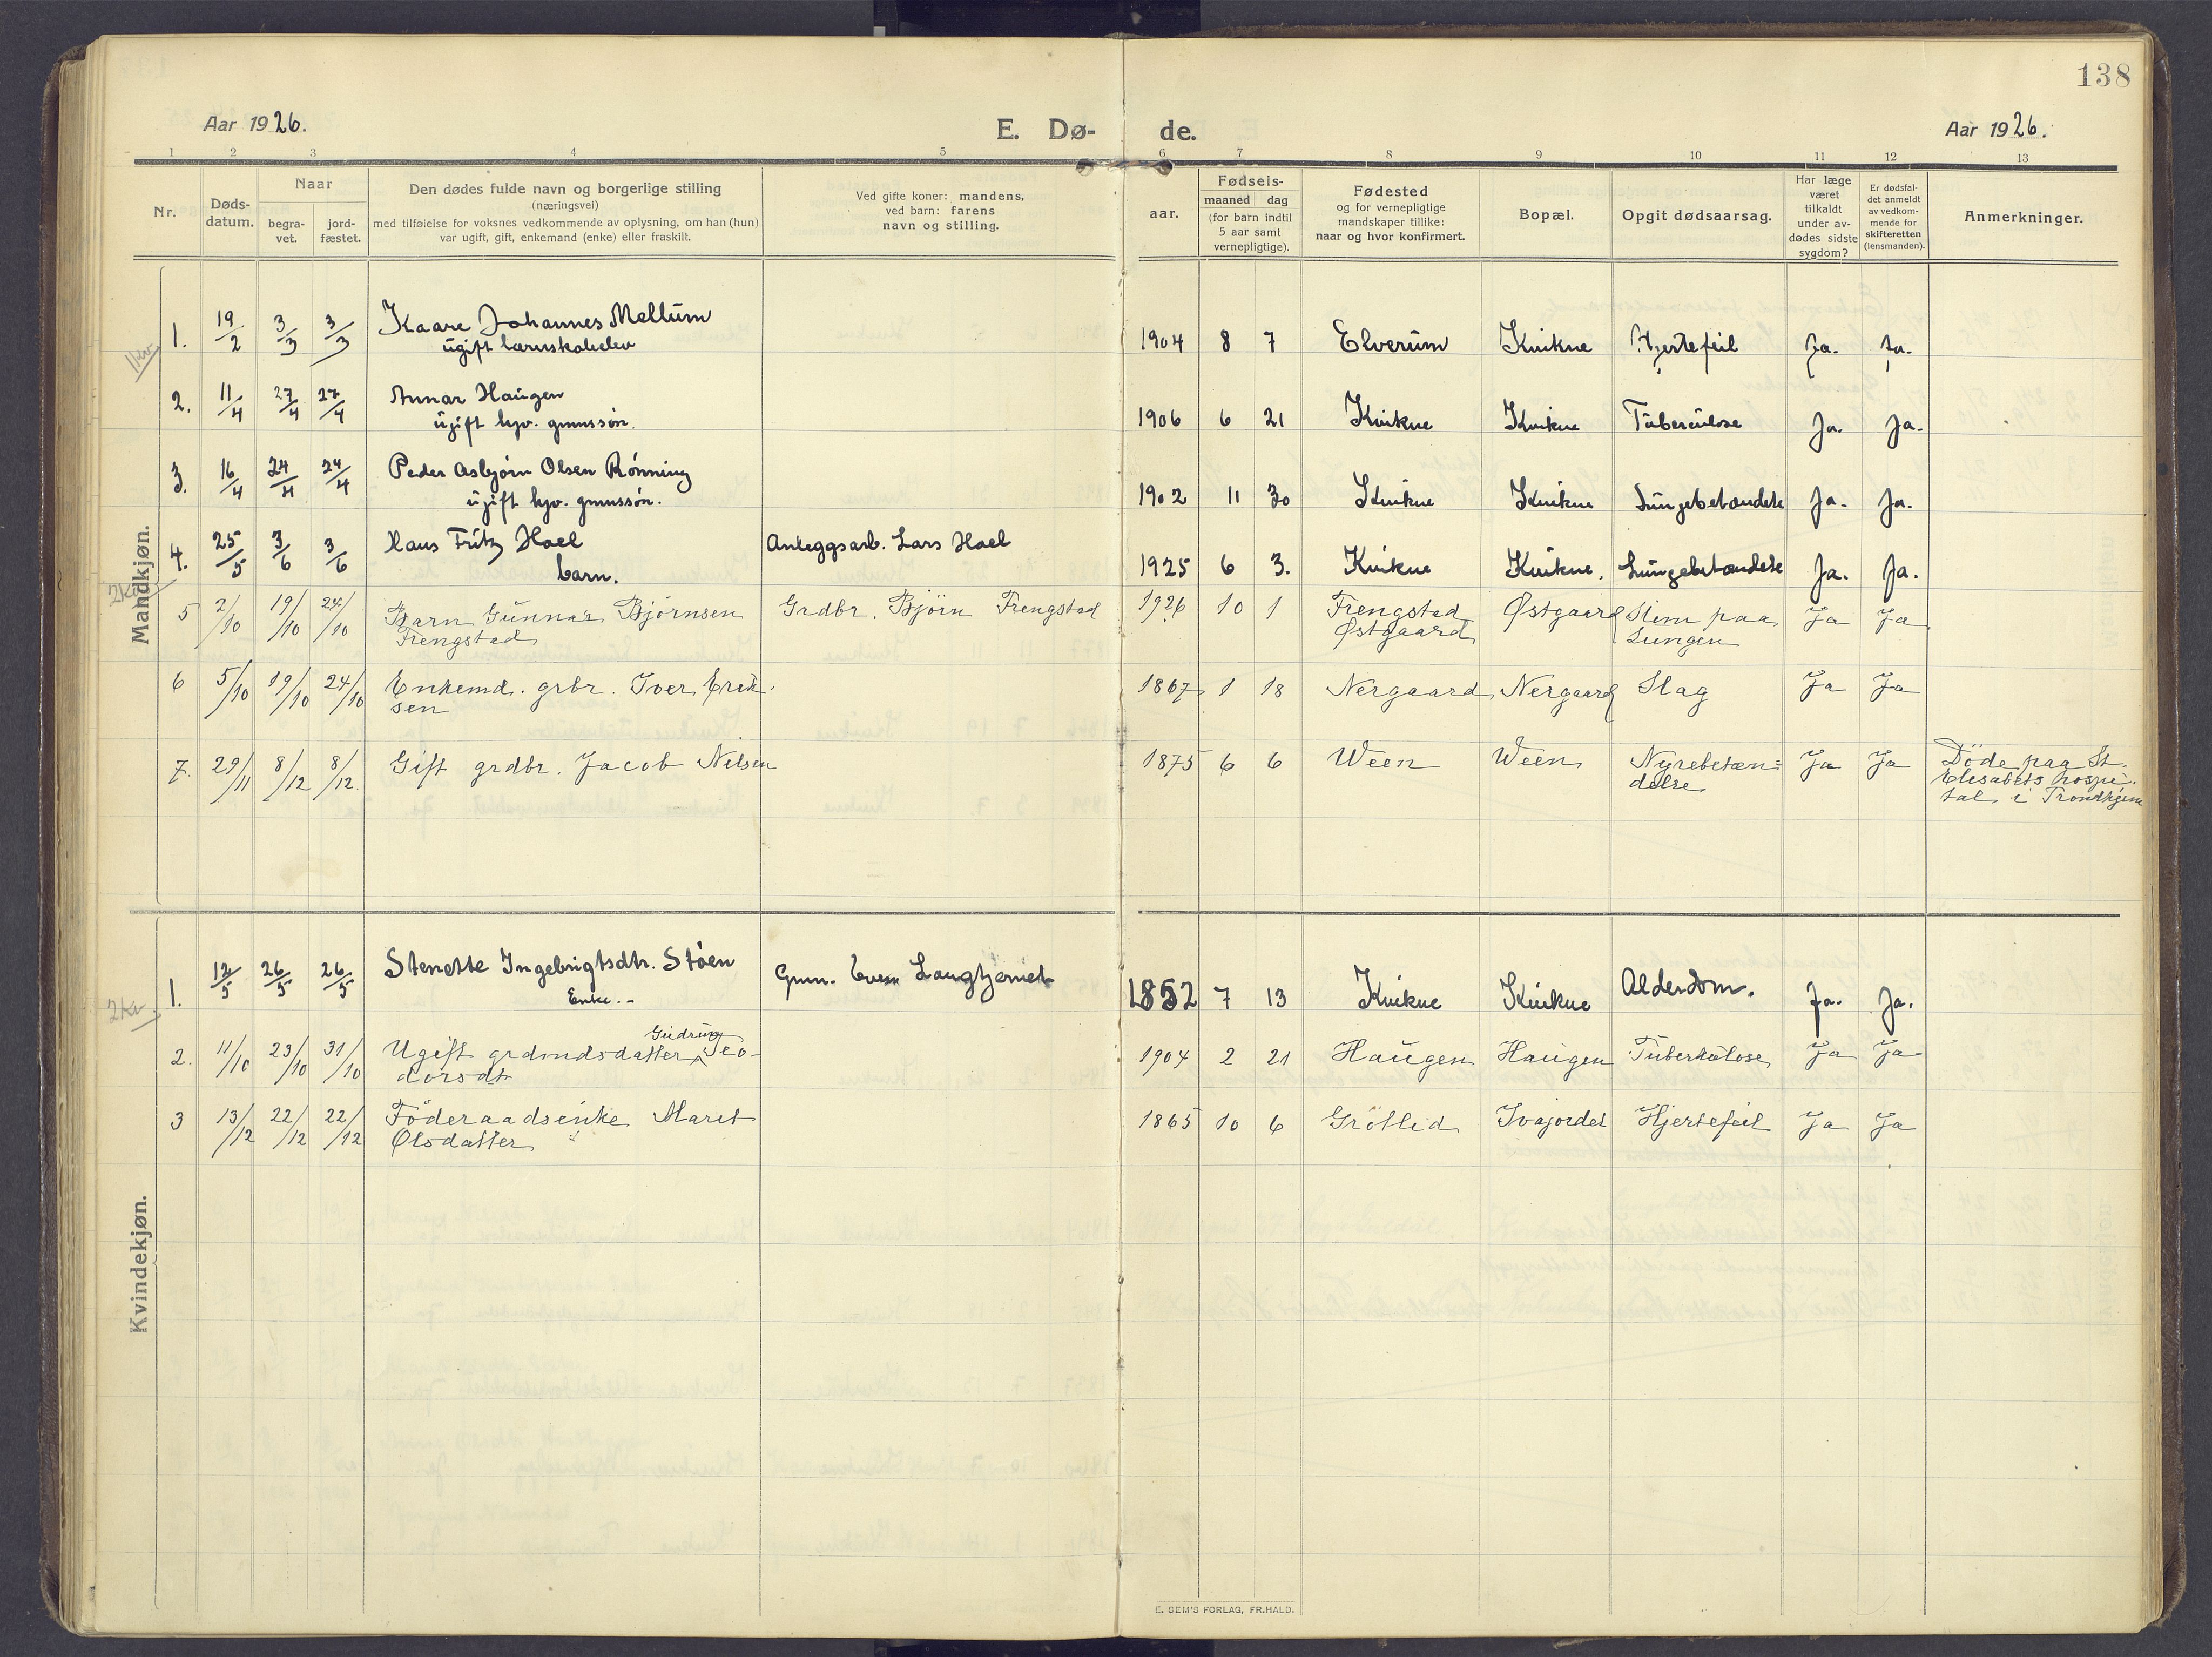 138
Aar 1926.
E. Dø-
de.
Aar 1926.
1 2 3 4 5 6 7 8 9 10 11 12 13
Nr.
Døds-
datum.
Naar
begra-
vet.
jord-
fæstet.
Den dødes fulde navn og borgerlige stilling
(næringsvei)
med tilføielse for voksnes vedkommende av oplysning, om han (hun)
var ugift, gift, enkemand (enke) eller fraskilt.
Ved gifte koner: mandens,
ved barn: farens
navn og stilling.
aar.
Fødsels-
maaned dag
(for barn indtil
5 aar samt
vernepligtige).
Fødested
og for vernepligtige
mandskaper tillike:
naar og hvor konfirmert.
Bopæl.
Opgit dødsaarsag.
Har læge
været
tilkaldt
under av-
dødes sidste
sygdom?
Er dødsfal-
det anmeldt
av vedkom-
mende for
skifteretten
(lensmanden).
Anmerkninger.
Mandkjøn.
1. 19/2 3/3 3/3 Kaare Johannes Mellum 1904 8 7 Elverum Kvikne Hjertefeil Ja. Ja.
ugift
2. 11/4 27/4 27/4 Annar Haugen 1906 6 21 Kvikne Kvikne Tuberculose Ja. Ja.
ugift hjv. gmnssøn.
3. 16/4 24/4 24/4 Peder Asbjørn Olsen Rønning 1902 11 30 Kvikne Kvikne Lungebetændelse Ja. Ja.
ugift hjv. gmnssøn.
4. 25/5 3/6 3/6 Hans Fritz Hoel Anleggsarb. Lars Hoel 1925 6 3. Kvikne Kvikne. Lungebetændelse Ja. Ja.
barn.
5 2/10 19/10 24/10 Barn Gunnar Bjørnsen Grdbr. Bjørn Frengstad 1926 10 1 Frengstad Østgaard Slim paa Ja Ja
Frengstad Østgaard Lungen
6 5/10 19/10 24/10 Enkemd. grbr. Iver Erik- 1867 1 18 Nergaard Nergaard Slag Ja Ja
sen
7. 29/11 8/12 8/12. Gift grdbr. Jacob Nilsen 1875 6 6 Ween Ween Nyrebetæn= Ja Ja Döde paa St.
delse Elisabets hospi-
tal i Trondhjem
Kvindekjøn.
2 Kv.
1. 12/5 26/5 26/5 Stenette Ingebrigtsdtr. Støen Gmn. Even Langtjernet 1852 7 13 Kvikne Kvikne Alderdom. Ja. Ja.
Enke. -
Gudrun
2. 11/10 23/10 31/10 Ugift grdmdsdatter Teo- 1904 2 21 Haugen Haugen Tuberkulose Ja Ja
dorsdt
3 13/12 22/12 22/12 Föderaadsenke Marit 1865 10 6 Grötlid Ivajordet Hjertefeil Ja Ja
Olsdatter
E. SEM'S FORLAG, FR.HALD.